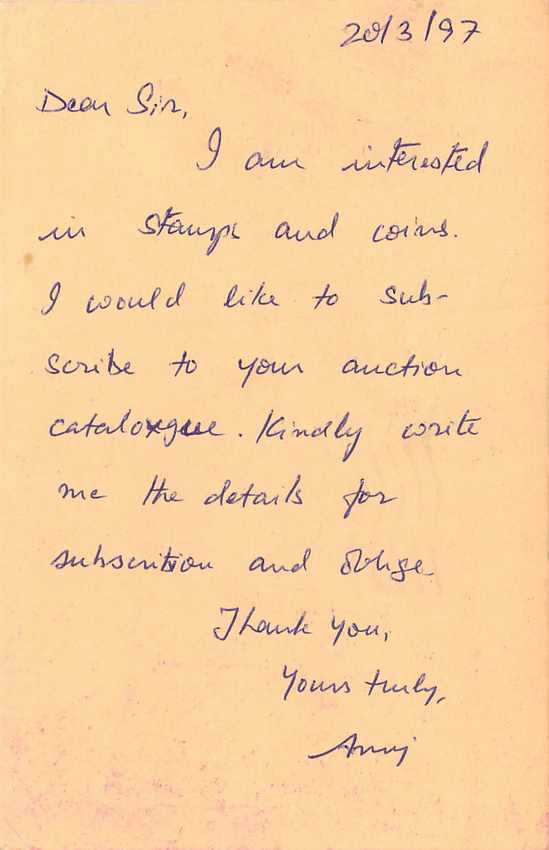 20/3/97
Dear Sir,
I am interested
in stamps and coins.
I would like to sub-
scribe to your auction
catalogue. Kindly write
me the details for
subscrition and oblige
Thank you,
Yours truly,
Anuj